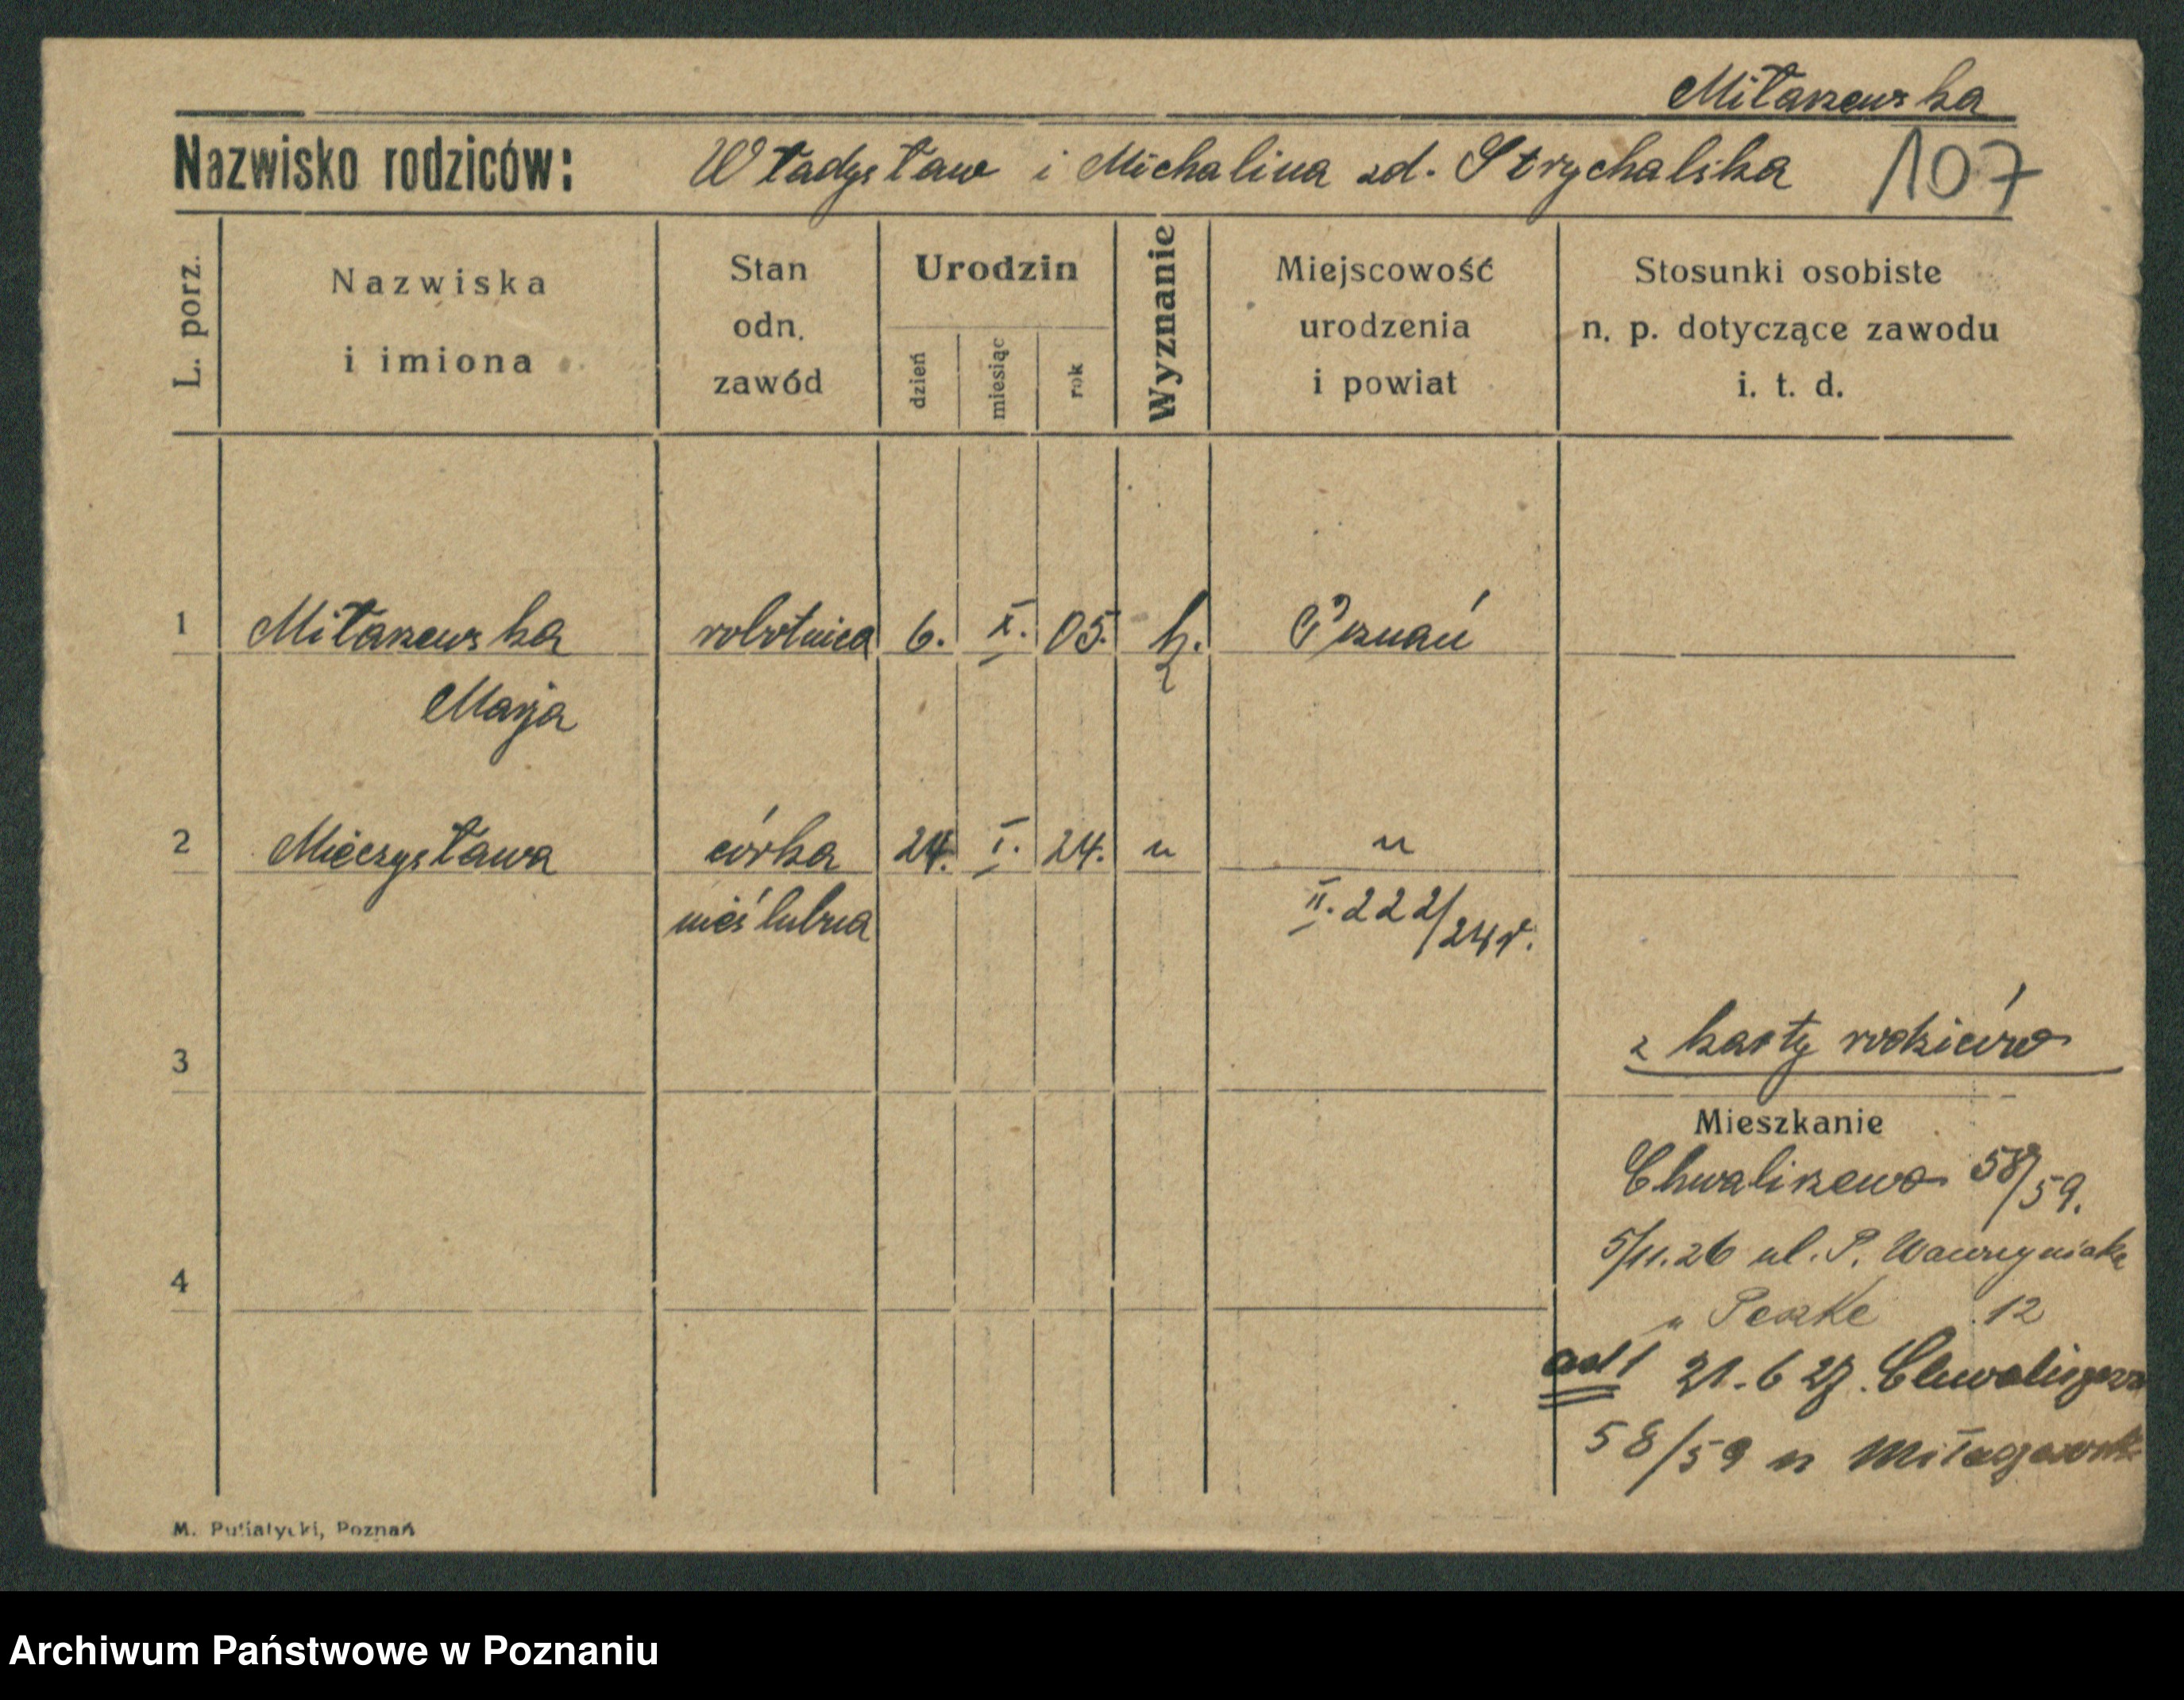 Miłaszewska
Nazwisko rodziców: Władysław i Michalina zd. Strychalska 107
L. porz.
Nazwiska i imiona
Stan odn. zawód
Urodzin
dzień miesiąc rok
Wyznanie
Miejscowość urodzenia i powiat
Stosunki osobiste n. p. dotyczące zawodu i. t. d.
1 Miłaszewska robotnica 6. X. 05. k. Poznań
Marja
2 Mieczysława córka 24. I. 24. " "
nieślubna II. 222/24 r.
3
z karty rodziców
Mieszkanie
Chwaliszewo 58/59.
5/11.26 ul. P. Wawrzyniaka
4
" Peszke 12
ad 1 21.6 27. Chwaliszewo
58/59 u
M. Putiatycki, Poznań
Archiwum Państwowe w Poznaniu